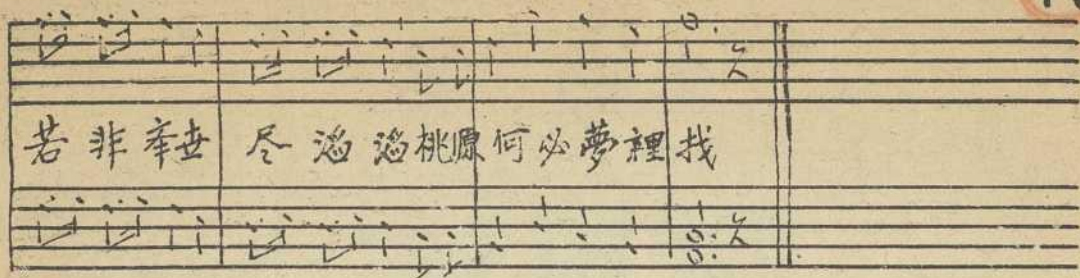 若非举世尽滔滔桃源何必夢裡找